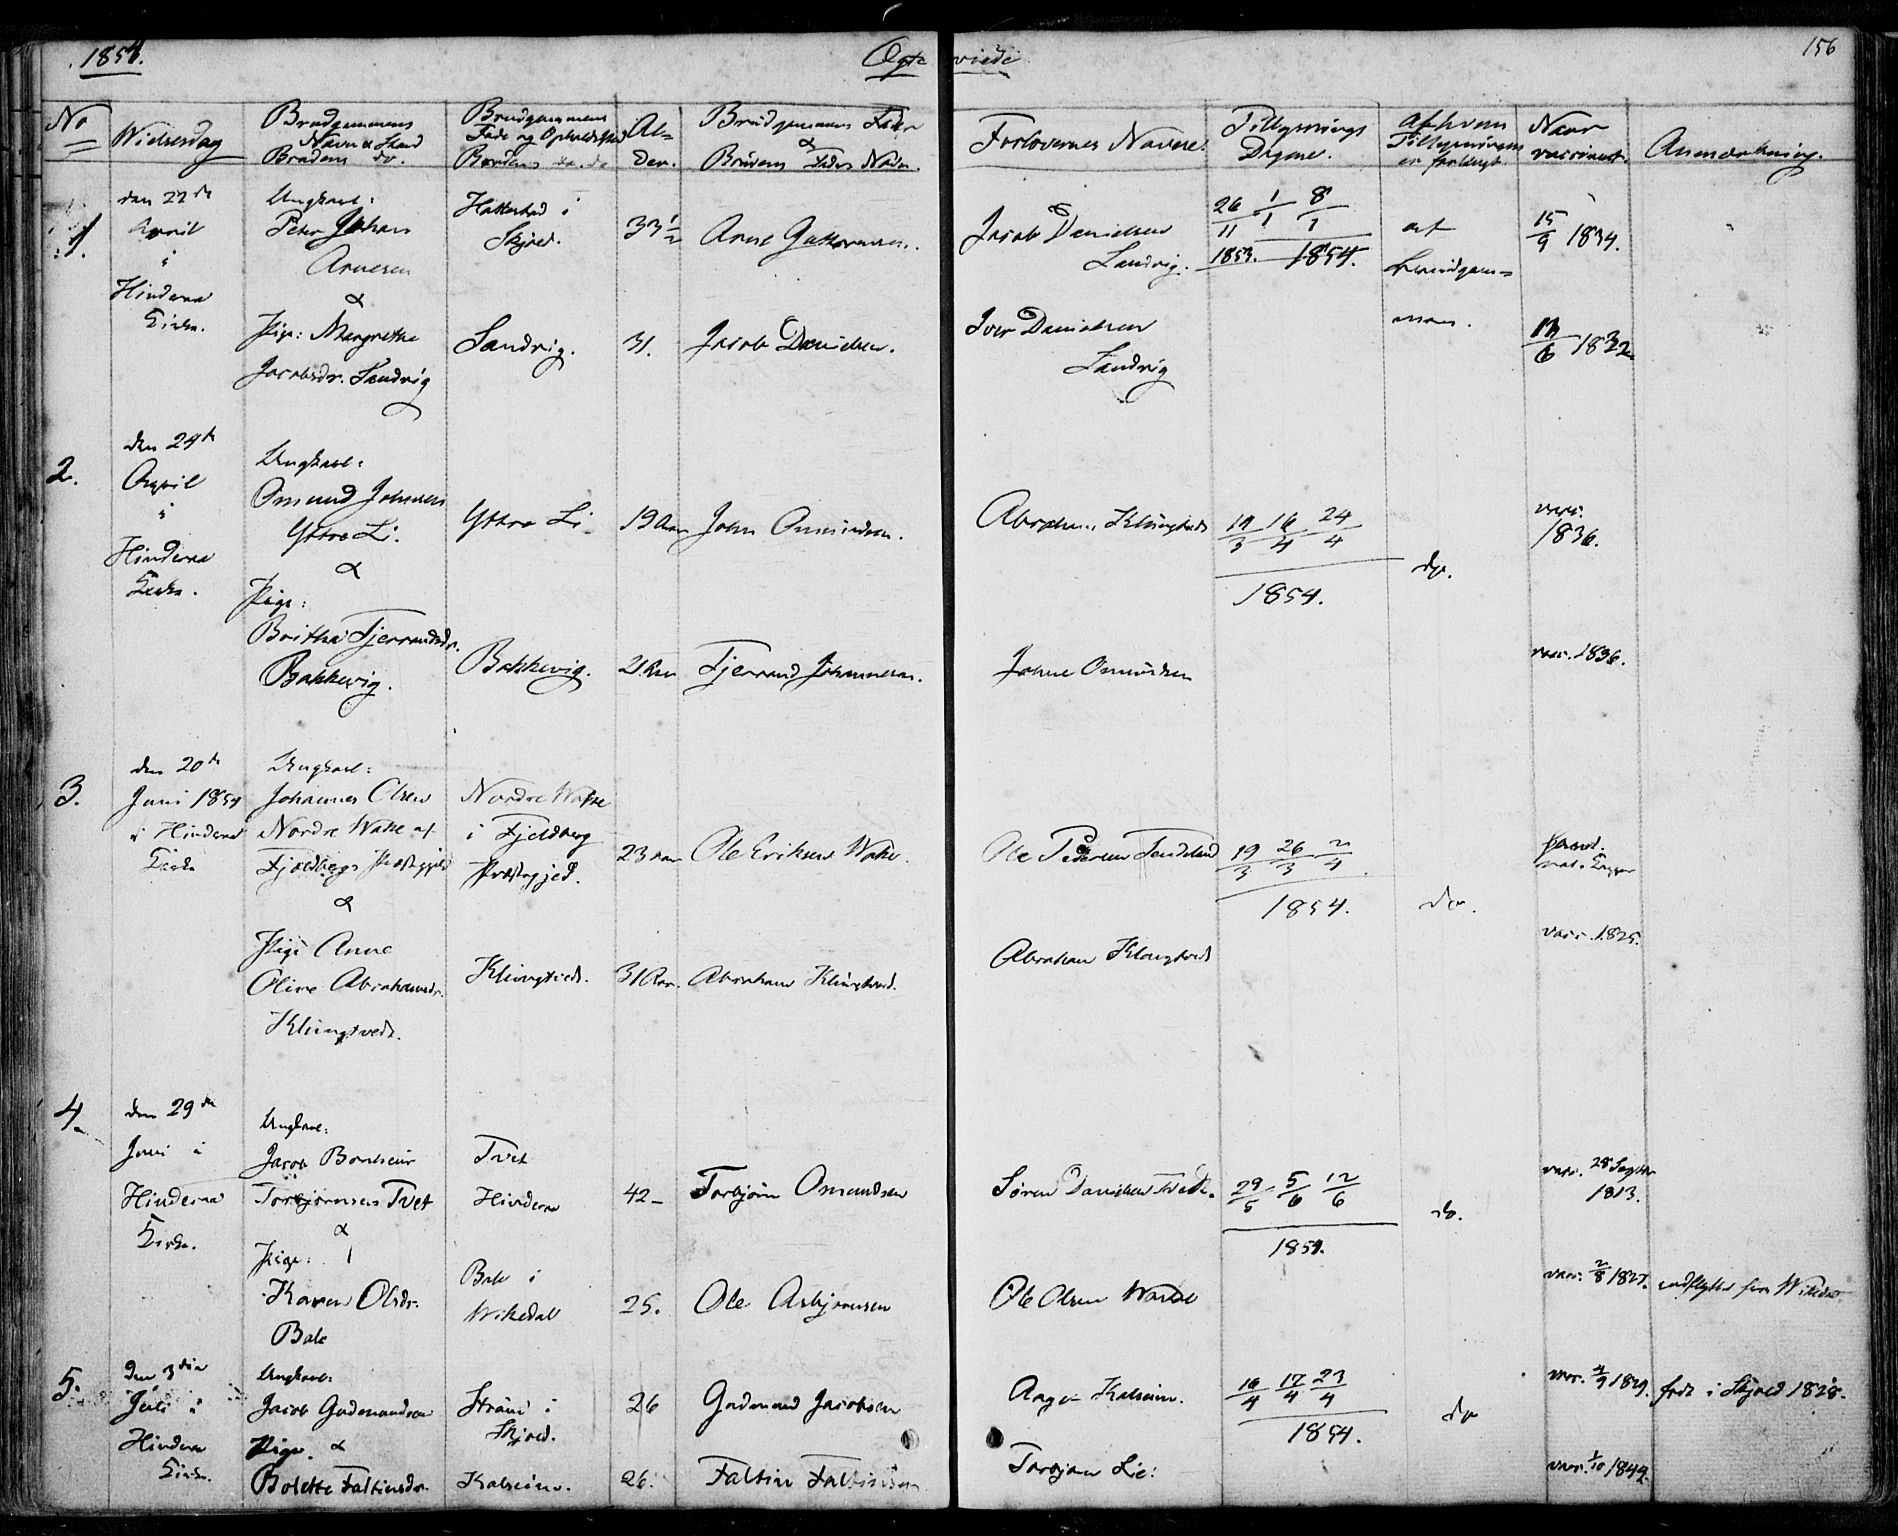 1854.
Ægte viede
156
No
Vielsesdag
Brudgommens
Navn & Stand
Brudens do.
Brudgommens
Føde og Opholdssted
Brudens do. do
Al-
der.
Brudgommens Fader
&
Brudens Faders Navn.
Forlovernes Navne
Tillysnings
Dagene.
Af hvem
Tillysningen
er forlangt
Naar
vaccineret.
Anmærkning.
1.
den 22de
April
i
Hinderaa
Kirke.
Ungkarl:
Peter Johan
Arnesen
&
Pige: Margrethe
Jacobsdr. Sandvig
i
Skjold.
Sandvig.
33 1/2
31.
Arne
Jacob Danielsen.
Jacob Danielsen
Sandvig.
Iver Danielsen
Sandvig
26/11 1/1 8/1
1853. 1854.
af
Brudgom-
men.
15/9 1834.
13/6 1832
2.
den 24de
April
i
Hinderaa
Kirke.
Ungkarl:
Omund Johnsen
Yttre Li.
&
Pige:
Britha Tjerrandsdr.
Bakkevig.
Yttre Li
Bakkevig.
19 Aar
21 Aar
John Omundsen.
Tjerrand Johannesen.
Abraham Klungtvedt
Johne Omundsen
19/3 16/4 24/4
1854.
do.
vacc.
1836.
vacc. 1836.
3.
den 20de
Juni 1854
i Hinderaa
Kirke
Ungkarl:
Johannes Olsen
Nordre Wake af
Fjeldbergs Præstegjeld
&
Pige Anne
Oline Abrahamsdr.
Klungtvedt.
Nordre Wake
i Fjeldberg
Præstegjed.
Klungtvedt.
23 aar
31 Aar.
Ole Eriksen Wake.
Abraham Klungtvedt.
Ole Pedersen
Abraham Klungtvedt
19/3 26/3 2/4
1854.
do.
vacc. 1825.
4.
den 29de
Juni i
Hinderaa
Kirke.
Ungkarl:
Jacob
Torbjørnsen Tvet
&
Pige:
Karen Olsdr.
Bale
Tvet
Hinderaa
Bale i
Wikedal
42
25.
Torbjørn Omundsen
Ole Asbjørnsen
Søren Danielsen
Ole Olsen
29/5 5/6 12/6
1854.
do.
vacc. 28 Septbr
1813.
vacc. 2/8 1827.
indflyttet fra Wikedal.
5.
Den 3die
Juli i
Hinderaa
Kirke.
Ungkarl
Jacob Gudmundsen
Pige. &
Bolette Faltinsdr.
i
Skjold.
Kalheim.
26
26.
Gudmund Jacobsen
Faltin Faltinsen
Aage Kalheim.
Torbjørn Lie.
16/4 17/4 23/4
1854.
do
vacc. 4/9 1829.
født i Skjold 1828.
vacc. 1/10 1842.